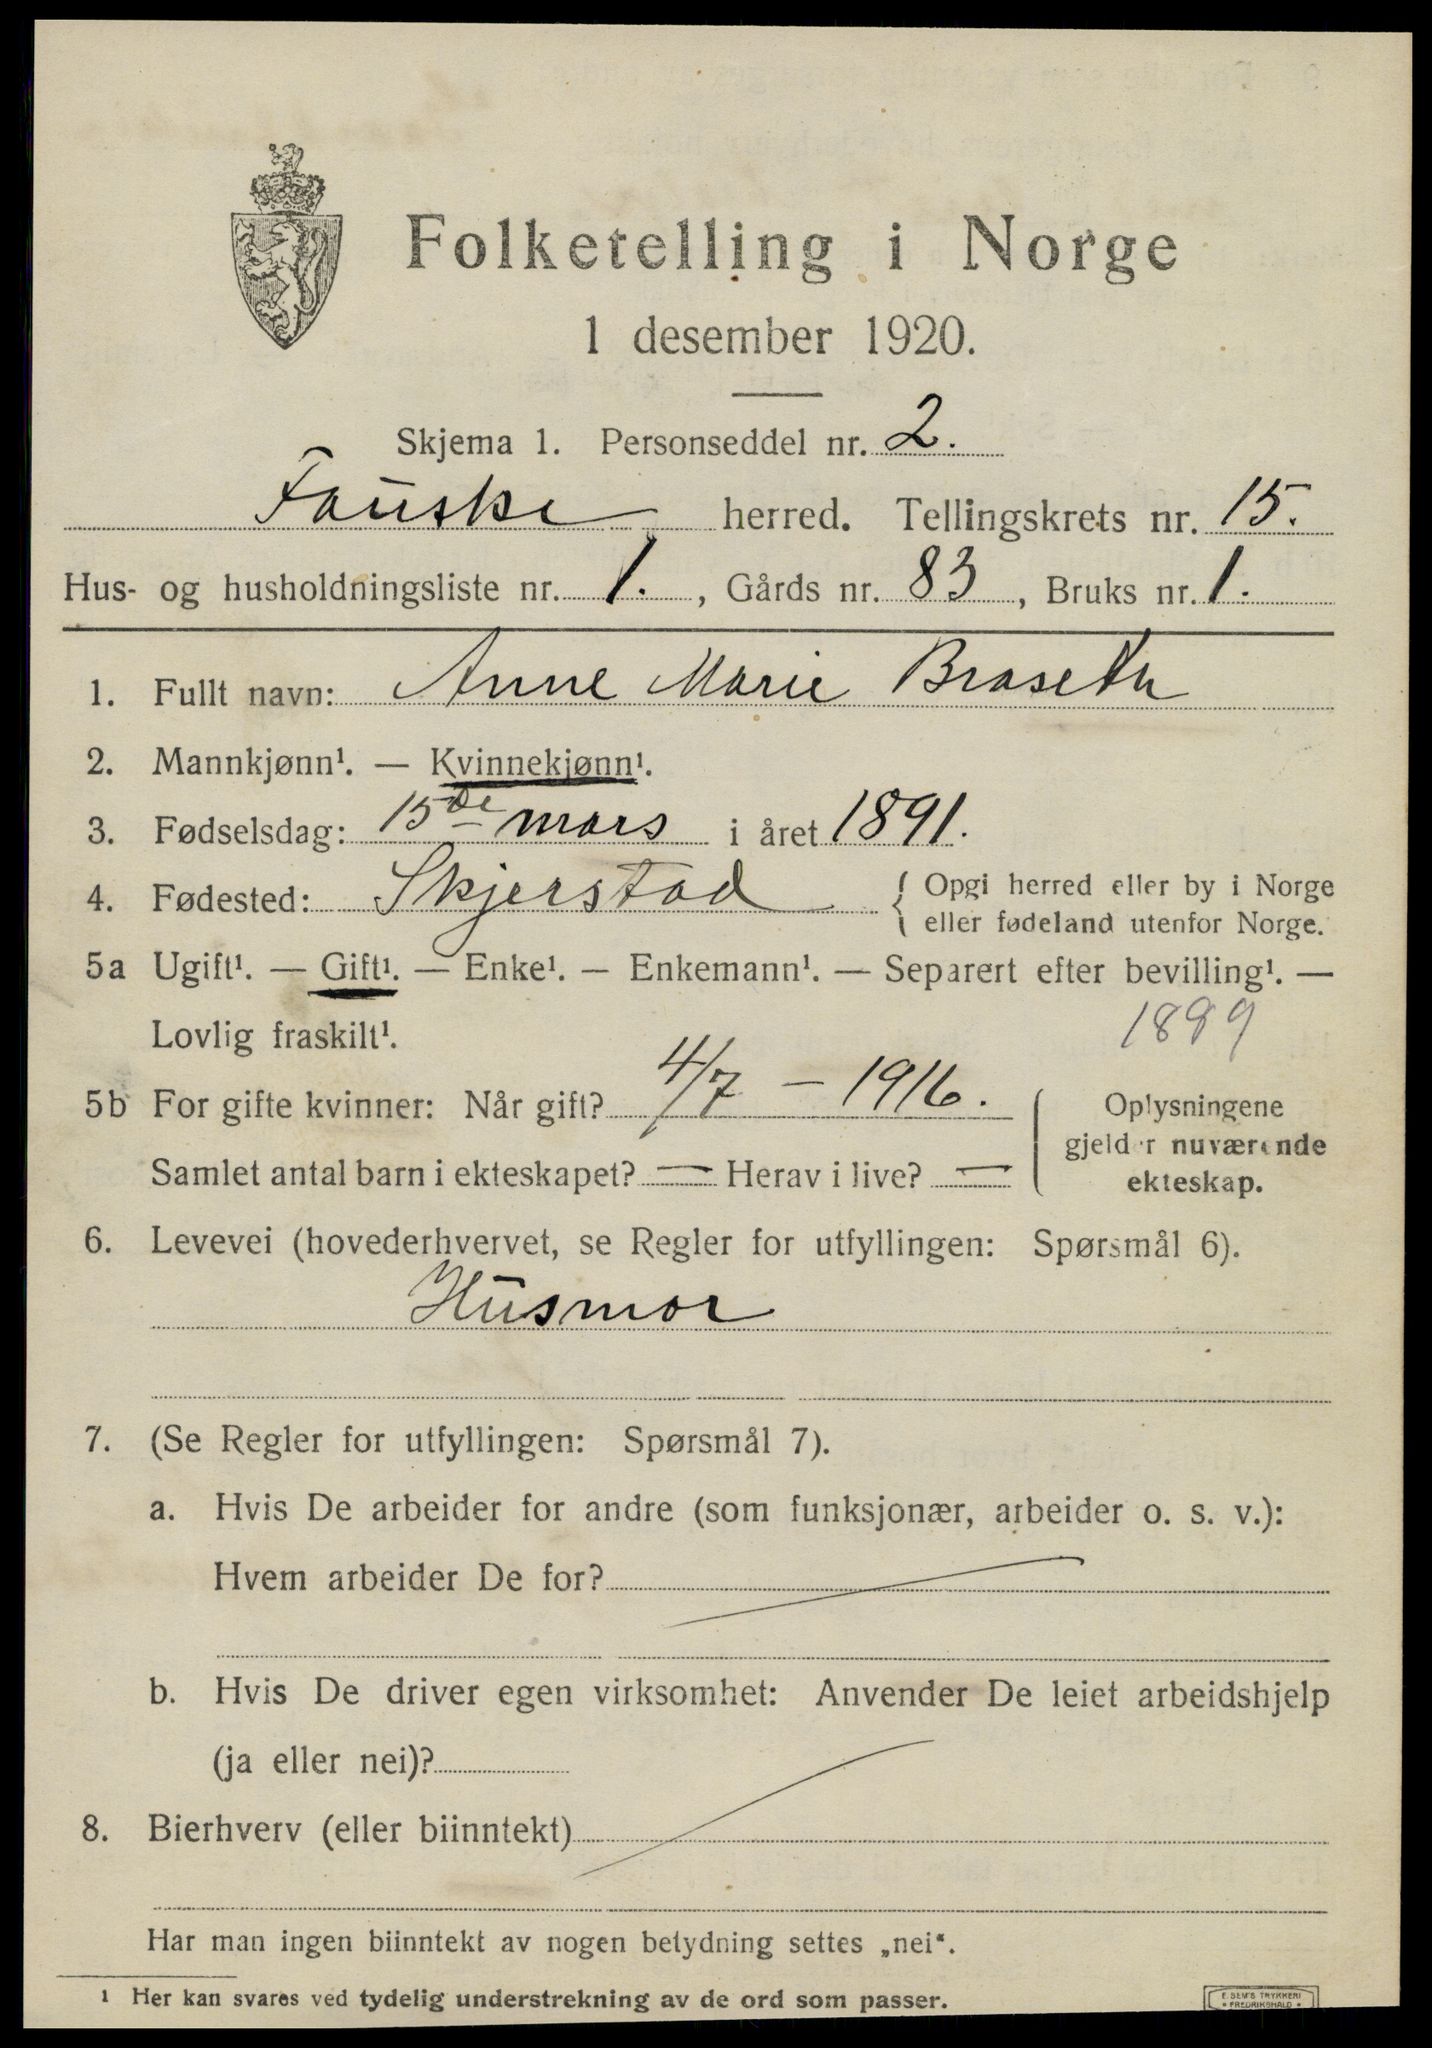 Folketelling i Norge
1 desember 1920.
Skjema 1. Personseddel nr. 2.
Fauske herred. Tellingskrets nr. 15.
Hus- og husholdningsliste nr. 1., Gårds nr. 83, Bruks nr. 1.
1. Fullt navn: Anne Marie Braseth
2. Mannkjønn¹. — Kvinnekjønn¹.
3. Fødselsdag: 15de mars i året 1891.
4. Fødested: Skjerstad { Opgi herred eller by i Norge
eller fødeland utenfor Norge.
5a Ugift¹. — Gift¹. — Enke¹. — Enkemann¹. — Separert efter bevilling¹. —
Lovlig fraskilt¹. 1899
5b For gifte kvinner: Når gift? 4/7 — 1916. { Oplysningene
gjelder nuværende
Samlet antal barn i ekteskapet? — Herav i live? — ekteskap.
6. Levevei (hovederhvervet, se Regler for utfyllingen: Spørsmål 6).
Husmor
7. (Se Regler for utfyllingen: Spørsmål 7).
a. Hvis De arbeider for andre (som funksjonær, arbeider o. s. v.):
Hvem arbeider De for?
b. Hvis De driver egen virksomhet: Anvender De leiet arbeidshjelp
(ja eller nei)?
8. Bierhverv (eller biinntekt)
Har man ingen biinntekt av nogen betydning settes „nei“.
¹ Her kan svares ved tydelig understrekning av de ord som passer.
E. SEM'S TRYKKERI
• FREDRIKSHALD •